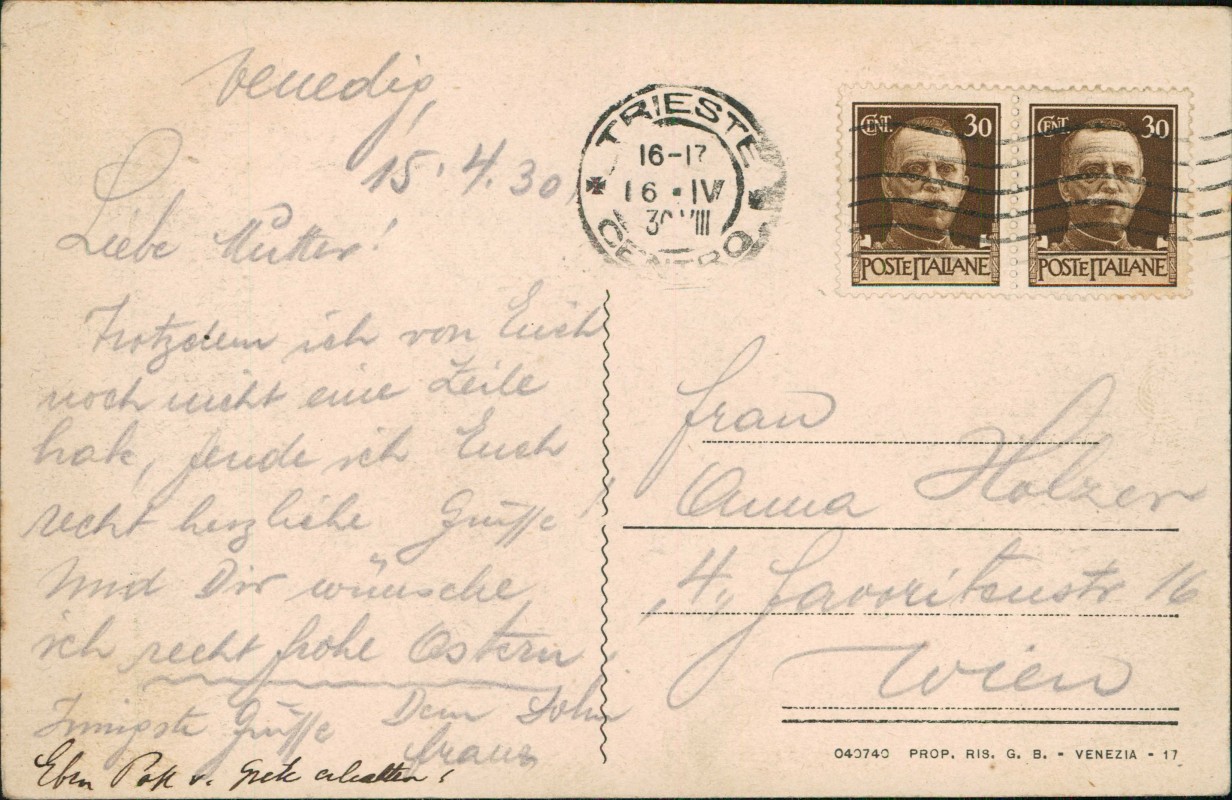 Venedig,
15.4.30,
Liebe Mutter!
Trotzdem ich von Euch
noch nicht eine Zeile
hab, sende ich Euch
recht herzliche Grüsse!
Und Dir wünsche
ich recht frohe Ostern,
Innigste Grüsse Dein Sohn
Franz
Eben Pak v. Grete erhalten!
TRIESTE
16-17
16 · IV
30 VIII
CENTRO
CENT. 30
POSTE ITALIANE
CENT. 30
POSTE ITALIANE
Frau
Anna Holzer
„4„ Favoritenstr 16
Wien
040740 PROP. RIS. G. B. - VENEZIA - 17